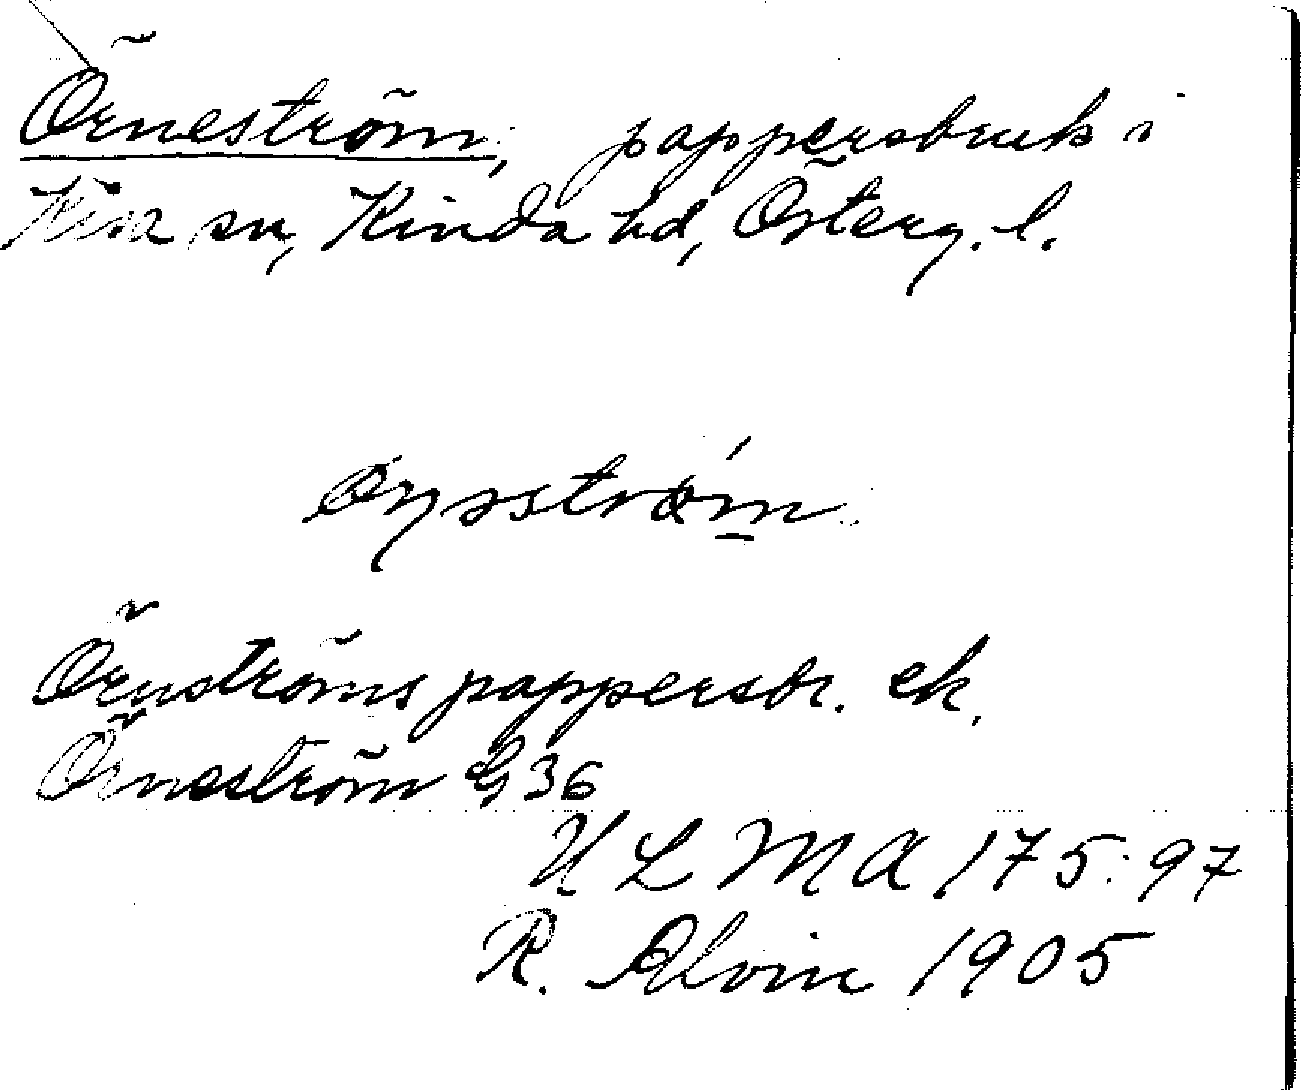 Örneström, pappersbruk i
Kisa sn, Kinda hd, Österg. l.
Örnströms pappersbr. ek.
Örneström G 36
ULMA 175:97
R. Alvin 1905